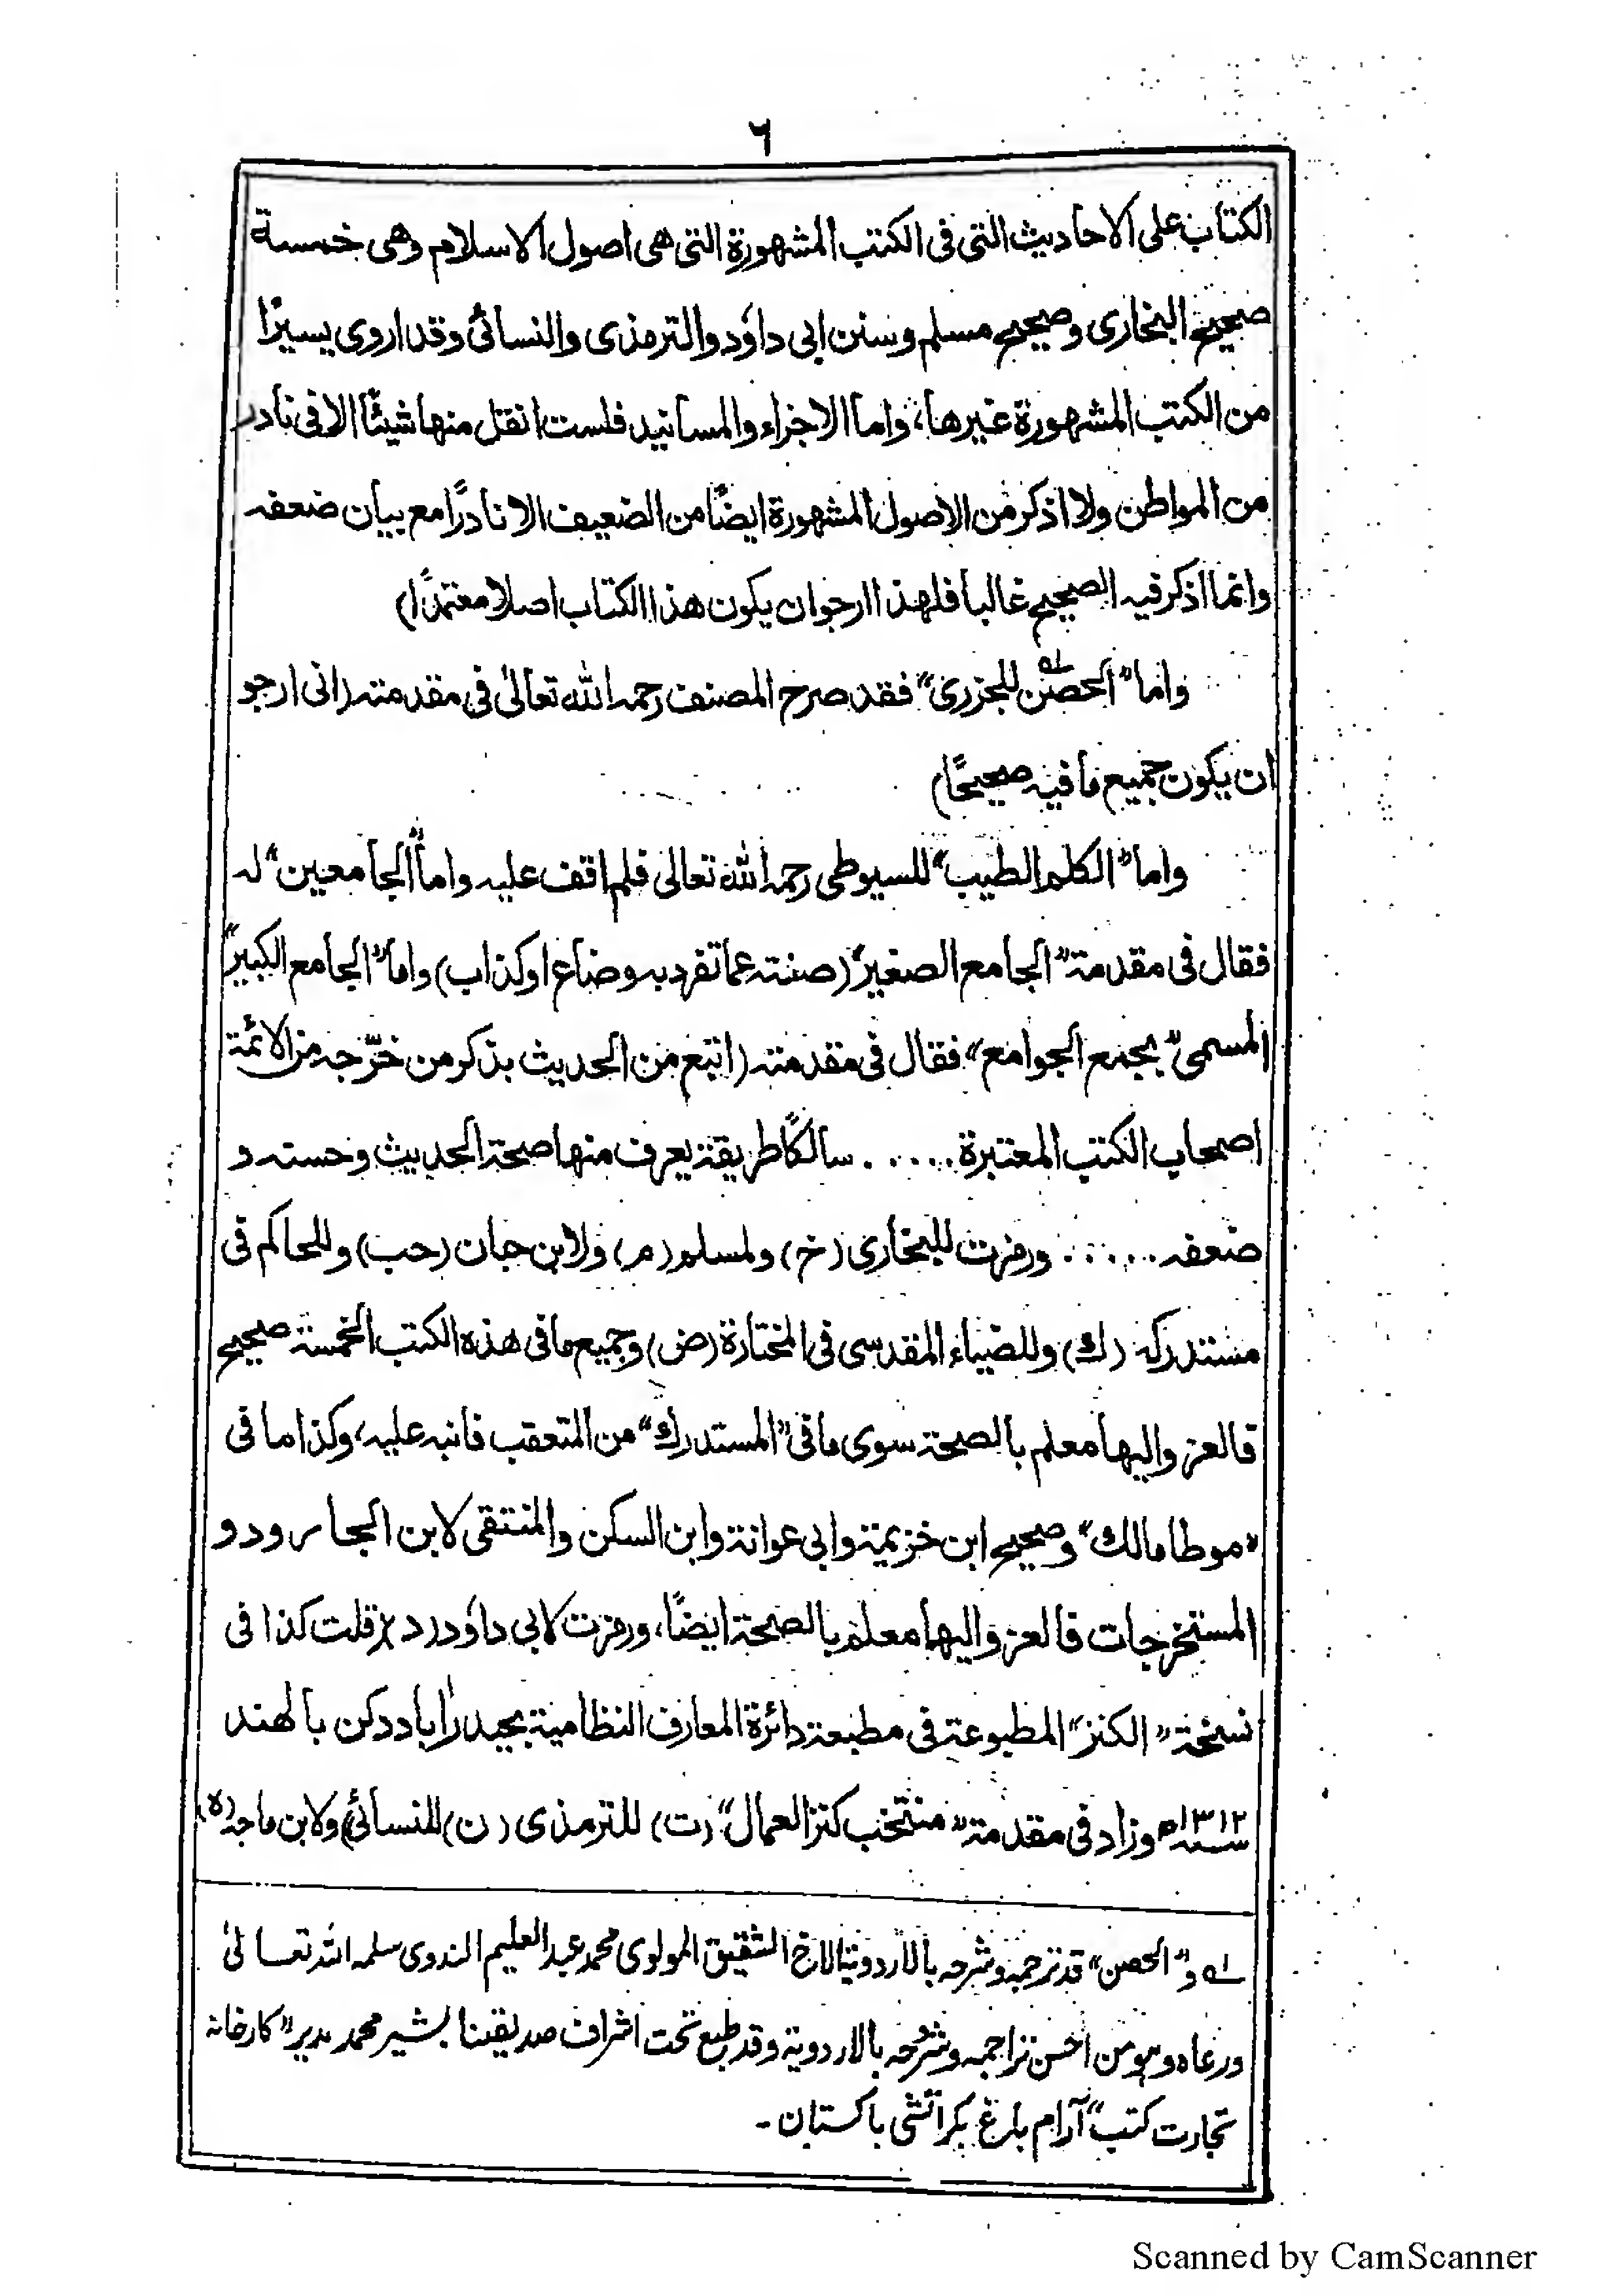 ٦
الكتاب على الاحاديث التى فى الكتب المشهورة التى هى اصول الاسلام وهى خمسة
صحيح البخارى وصحيح مسلم وسنن ابى داؤد والترمذى والنسائى وقد اروى يسيرًا
من الكتب المشهورة غيرها، واما الاجزاء والمسانيد فلست انقل منها شيئًا الا فى نادر
من المواطن ولا اذكر من الاصول المشهورة ايضًا من الضعيف الا نادرًا مع بيان ضعفه
وانما اذكر فيه الصحيح غالبا فلهذا ارجو ان يكون هذا الكتاب اصلا معتمدًا)
واما "الحصن للجزرى" فقد صرح المصنف رحمه الله تعالىٰ فى مقدمته (انى ارجو
ان يكون جميع ما فيه صحيحًا)
واما "الكلم الطيب" للسيوطى رحمه الله تعالى فلم اقف عليه واما "الجامعين" له
فقال فى مقدمة "الجامع الصغير" (صنته عما تفرد به وضاع او كذاب) واما "الجامع الكبير"
المسمى "بجمع الجوامع" فقال فى مقدمته (اتبع من الحديث بذكر من خرّجه من الائمة
اصحاب الكتب المعتبرة ...... سالكًا طريقة يعرف منها صحة الحديث وحسنه و
ضعفه ...... ورمزت للبخارى (خ) ولمسلم (م) ولابن حبان (حب) وللحاكم فى
مستدركه (ك) وللضياء المقدسى فى المختارة (ض) وجميع ما فى هذه الكتب الخمسة صحيح
فالعزو اليها معلم بالصحة سوى ما فى "المستدرك" من المتعقب فانبه عليه، وكذا ما فى
"موطا مالك" وصحيح ابن خزيمة وابى عوانة وابن السكن والمنتقى لابن الجارود و
المستخرجات فالعزو اليها معلم بالصحة ايضًا، ورمزت لابى داؤد (د) قلت كذا فى
نسخة "الكنز" المطبوعة فى مطبعة دائرة المعارف النظامية بحيدرآباد دكن بالهند
سنة ١٣١٢ھ وزاد فى مقدمة "منتخب كنز العمال" (ت) للترمذى (ن) للنسائى ولابن ماجه (ه)
لہ و"الحصن" قد ترجمه وشرحه بالاردوية الاخ الشقيق المولوى محمد عبدالعليم الندوى سلمه الله تعالىٰ
ورعاه وهو من احسن تراجمه وشروحه بالاردوية وقد طبع تحت اشراف صديقنا بشير محمد مدير "كارخانه
تجارت كتب" آرام باغ بكراتشى باكستان ـ
Scanned by CamScanner